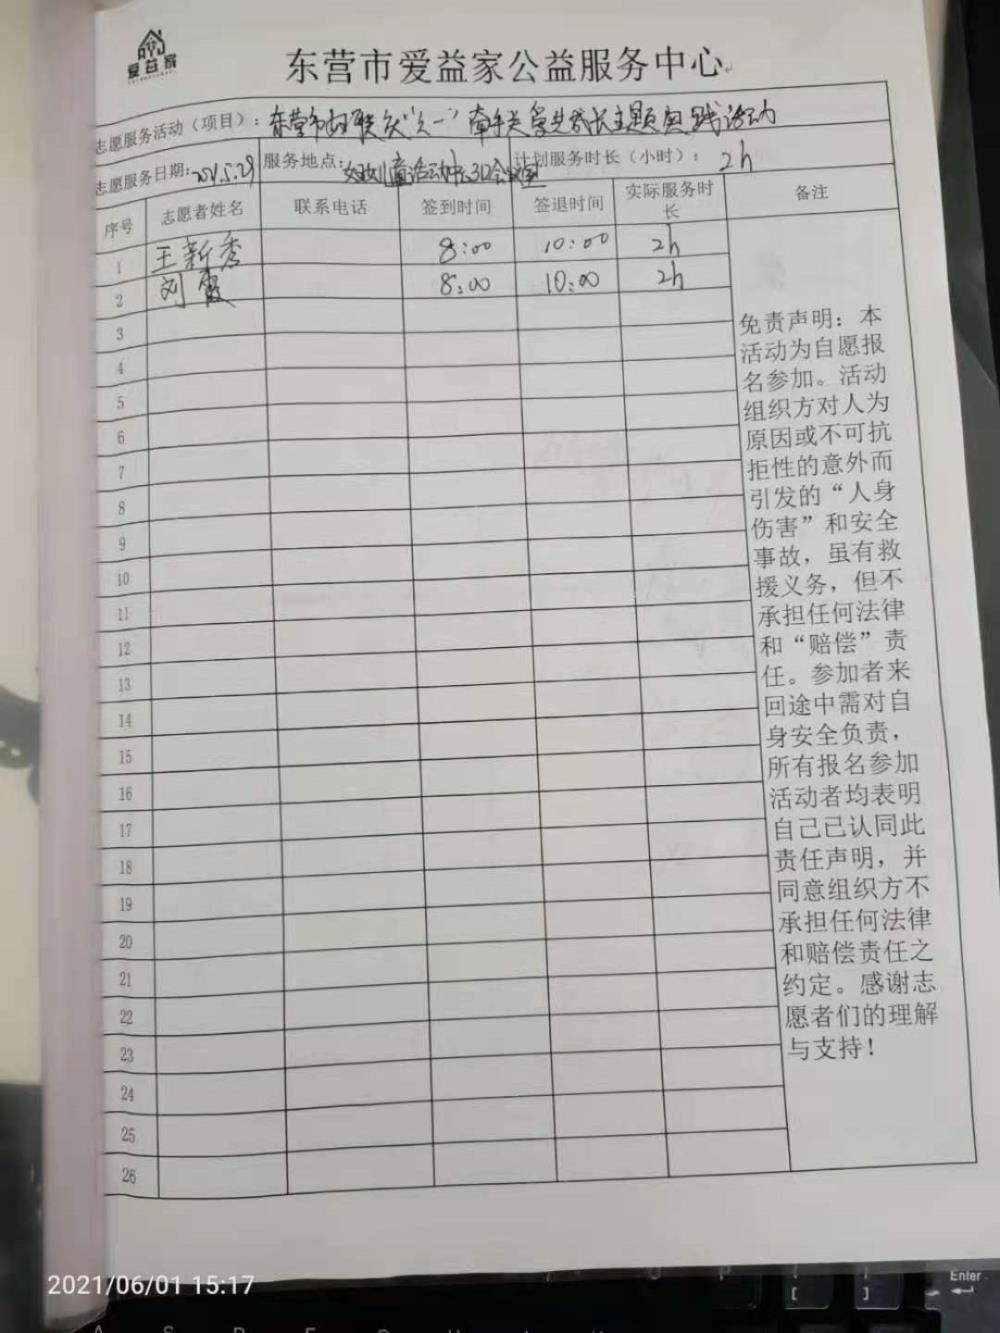 爱益家
东营市爱益家公益服务中心
志愿服务活动（项目）：东营市妇联庆“六一”牵手关爱共成长主题实践活动
志愿服务日期：2021.5.29 服务地点：妇女儿童活动中心 计划服务时长（小时）：2h
序号 志愿者姓名 联系电话 签到时间 签退时间 实际服务时长 备注
1 王新秀 8:00 10:00 2h
2 刘霞 8:00 10:00 2h
3
4
5
6
7
8
9
10
11
12
13
14
15
16
17
18
19
20
21
22
23
24
25
26
免责声明：本
活动为自愿报
名参加。活动
组织方对人为
原因或不可抗
拒性的意外而
引发的“人身
伤害”和安全
事故，虽有救
援义务，但不
承担任何法律
和“赔偿”责
任。参加者来
回途中需对自
身安全负责，
所有报名参加
活动者均表明
自己已认同此
责任声明，并
同意组织方不
承担任何法律
和赔偿责任之
约定。感谢志
愿者们的理解
与支持！
2021/06/01 15:17
Enter